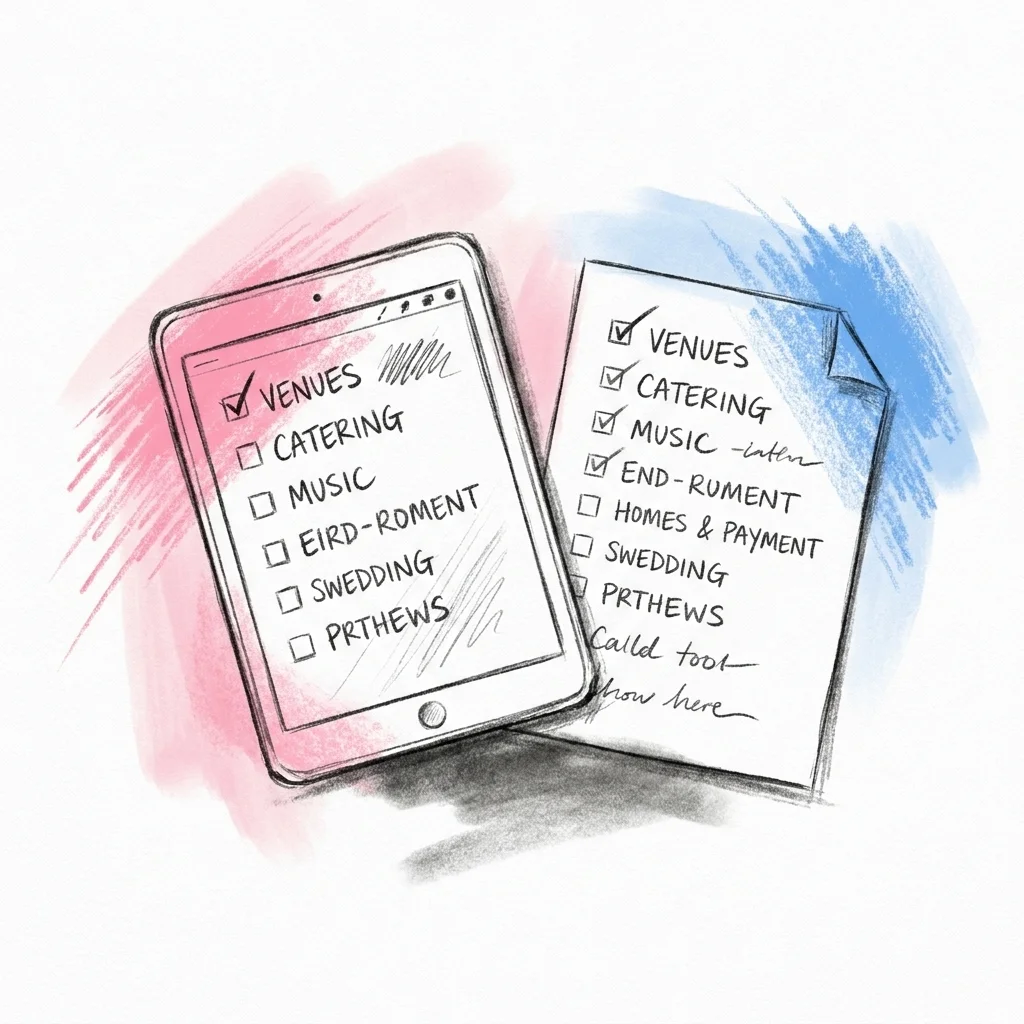 VENUES
CATERING
MUSIC
EIRD-ROMENT
SWEDDING
PRTHEWS
VENUES
CATERING
MUSIC
END-RUMENT
HOMES & PAYMENT
SWEDDING
PRTHEWS
Calld toot
how here